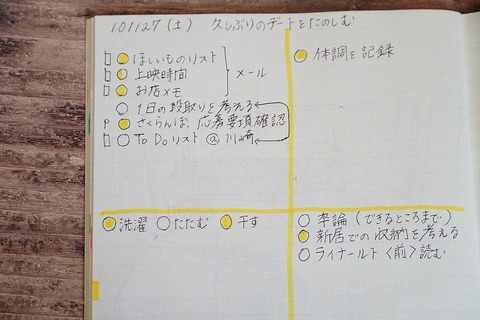 101127(土) 久しぶりのデートをたのしむ
ほしいものリスト
上映時間
お店メモ
メール
1日の段取りを考える
P さくらんぼ、応募要項確認
To Doリスト @ 川崎
体調を記録
洗濯 たたむ 干す
卒論(できるところまで)
新居での収納を考える
ライナールト〈前〉読む